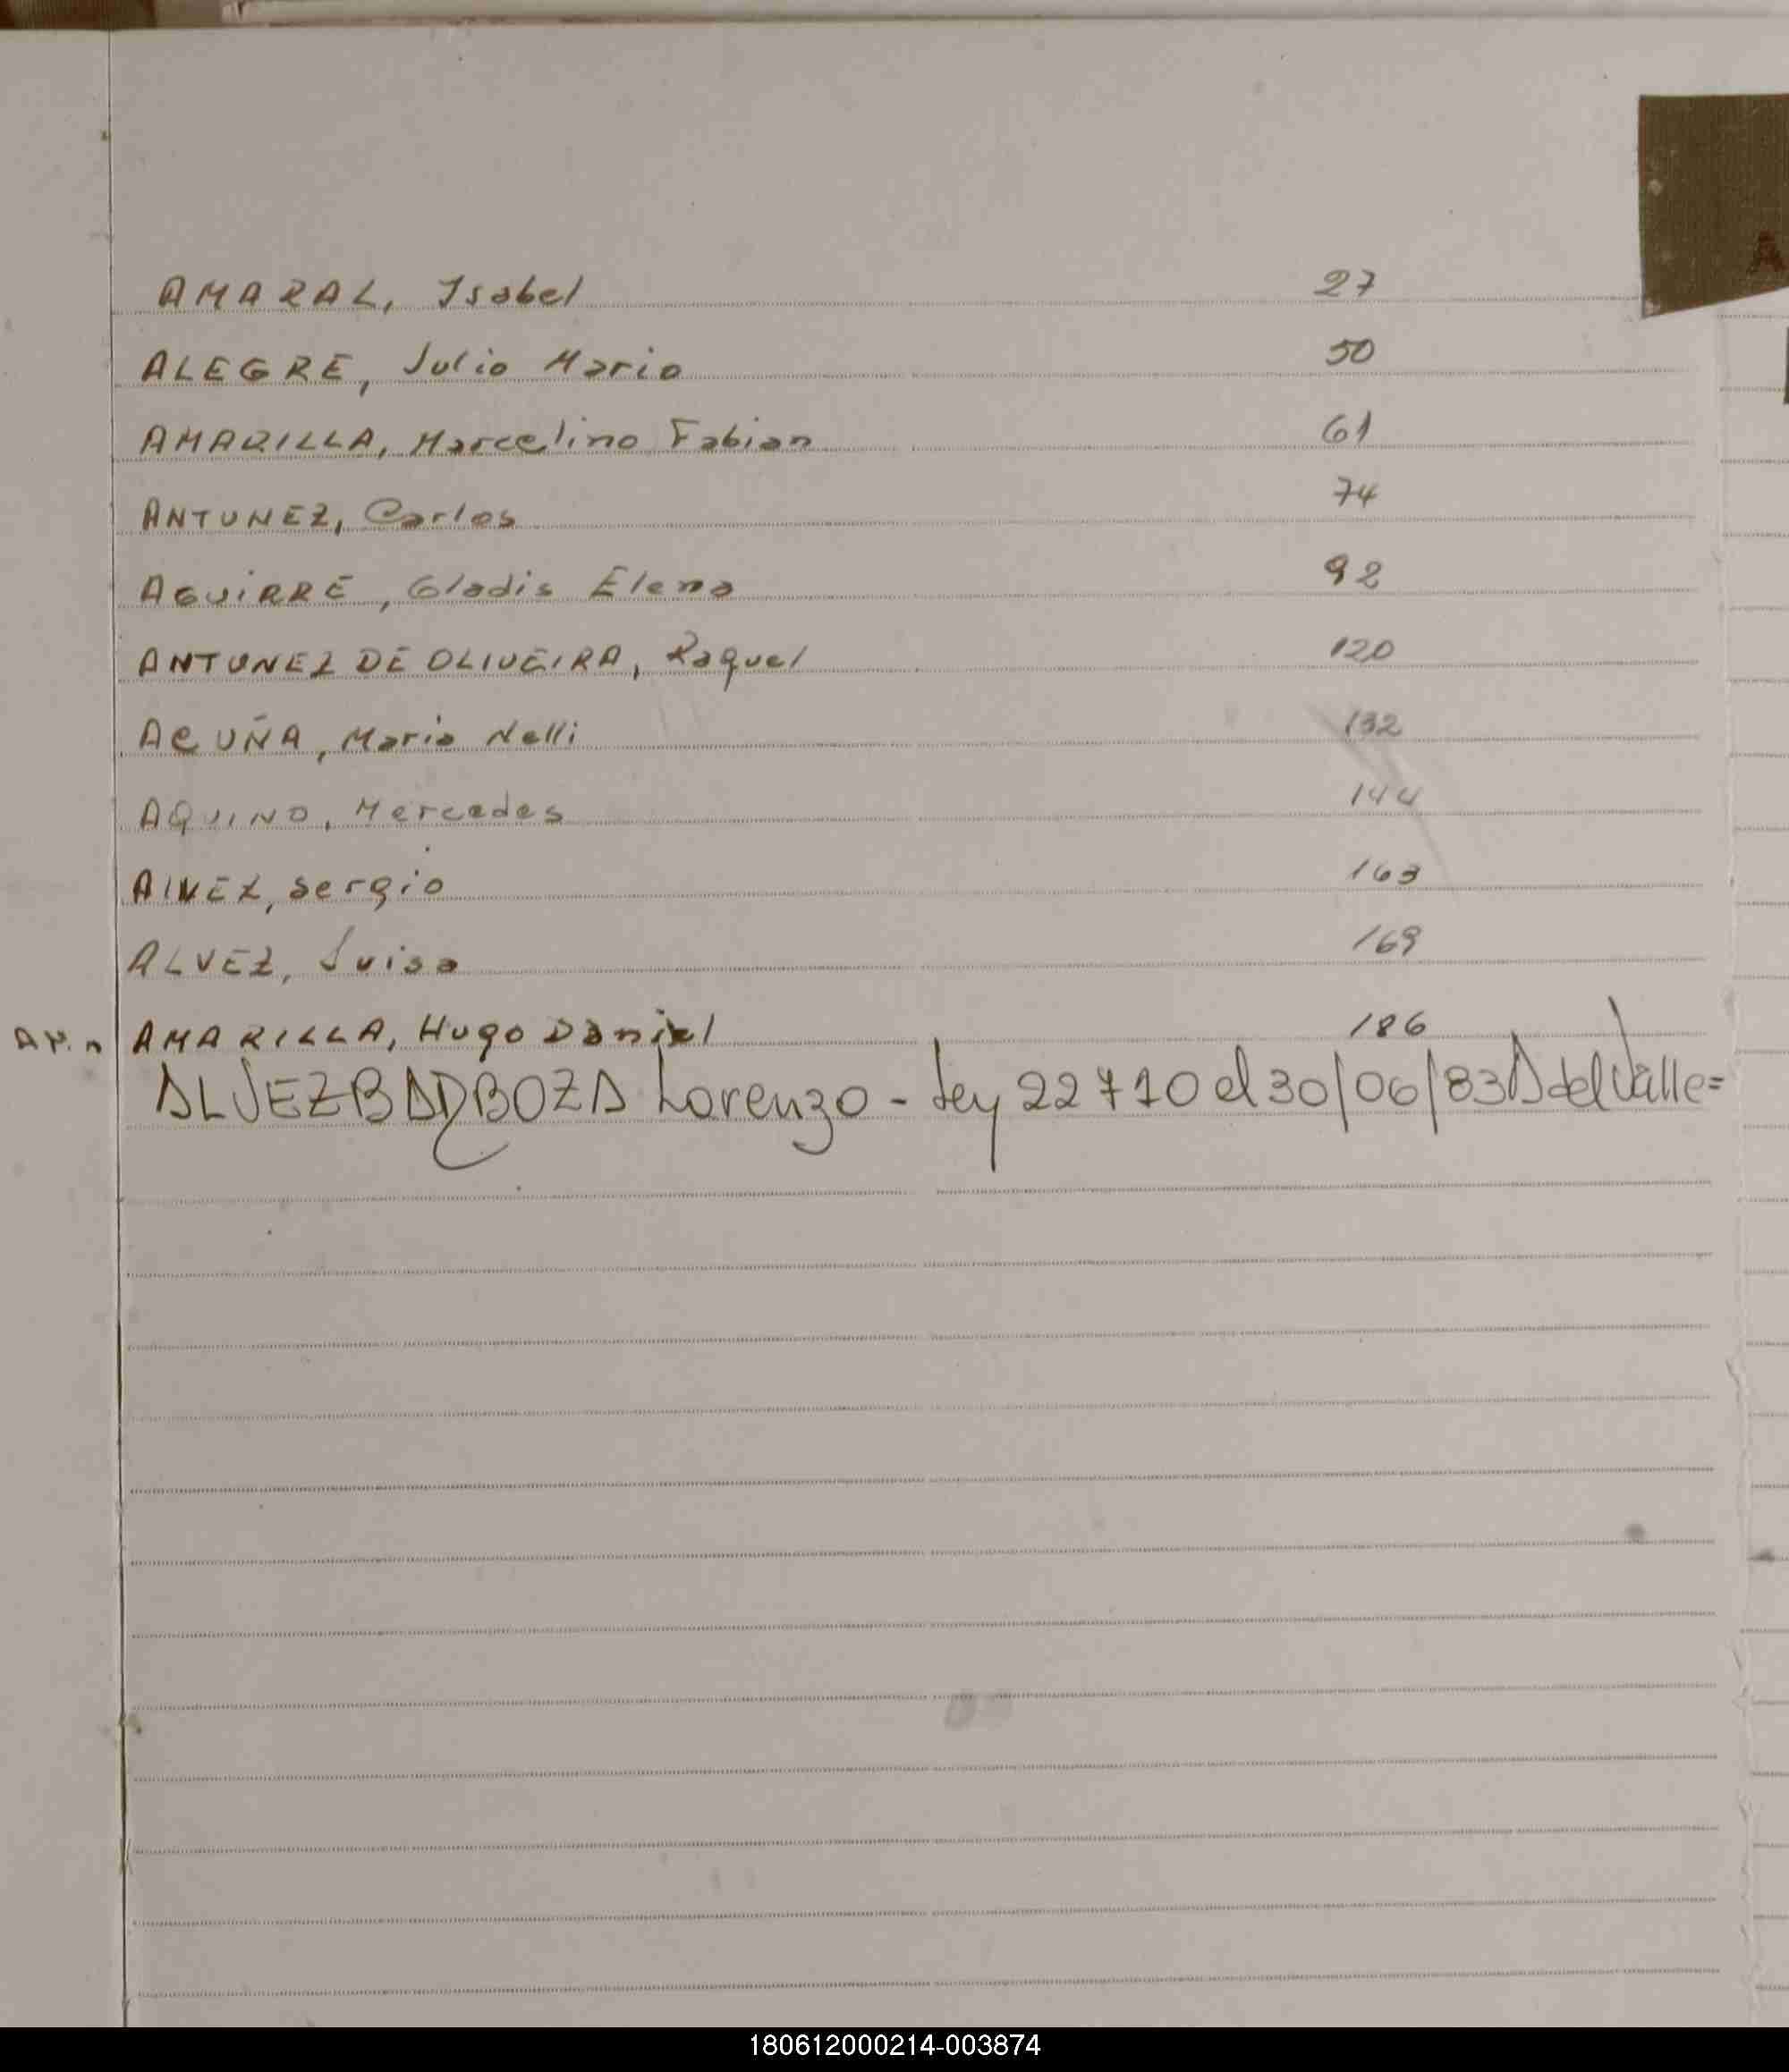 A
AMARAL, Isabel 27
ALEGRE, Julio Mario 50
AMARILLA, Marcelino Fabian 61
ANTUNEZ, Carlos 74
AGUIRRE, Gladis Elena 92
ANTUNEZ DE OLIVEIRA, Raquel 120
ACUÑA, Maria Nelli 132
AQUINO, Mercedes 144
AINEZ, Sergio 163
ALVEZ, Luisa 169
AMARILLA, Hugo Daniel 186
ALVEZ BARBOZA Lorenzo - Ley 22710 el 30/06/83 A del Valle=
180612000214-003874